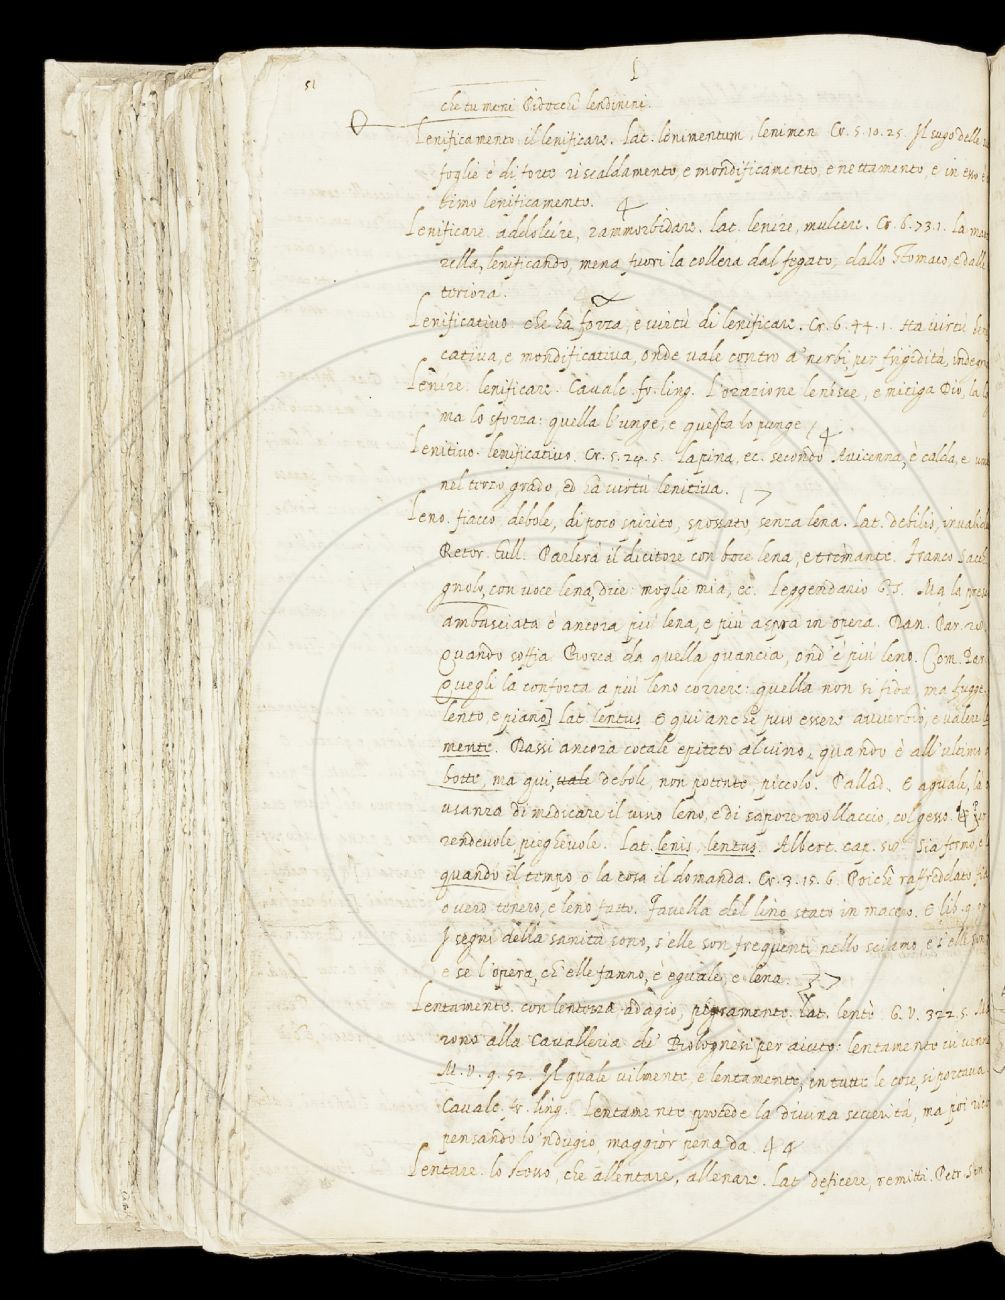 51
L
che tu meni Pidocchi lendinini.
Lenificamento. il lenificare. Lat. lenimentum, lenimen Cr. 5. 10. 25. Il sugo delle
foglie è di forte riscaldamento, e mondificamento, e nettamento, e in esso è
timo lenificamento.
Lenificare. addolcire, rammorbidare. Lat. lenire, mulcere. Cr. 6. 73. 1. La
rella, lenificando, mena fuori la collera dal fegato, dallo stomaco, e dalle
teriora.
Lenificativo. che ha forza, e virtù di lenificare. Cr. 6. 44. 1. Ha virtù
cativa, e mondificativa, onde vale contro a' nerbi, per frigidità,
Lenire. lenificare. Cavalc. fr. ling. L'orazione lenisce, e mitiga Dio,
ma lo sforza: quella l'unge, e questa lo punge
Lenitivo. lenificativo. Cr. 5. 24. 5. La pina, ec. secondo Avicenna, è calda, e
nel terzo grado, ed ha virtù lenitiva.
Leno. fiacco, debole, di poco spirito, spossato, senza lena. Lat. debilis,
Retor. Tull. Parlerà il dicitore con boce lena, e tremante. Franco Sacch.
gnolo, con voce lena, dice: moglie mia, ec. Leggendario Ma la
ambasciata è ancora più lena, e più aspra in opera. Dan. Par.
Quando soffia Borea da quella guancia, ond'è più leno. Com. Par.
Quegli la conforta a più leno correre: quella non si fida, ma fugge.
lento, e piano] Lat. lentus E qui anche può essere avverbio, e
mente. Dassi ancora cotale epiteto al vino, quando è all'ultimo
botte, ma qui, vale debole, non potente, piccolo. Pallad. E aguale, la
usanza di medicare il vino leno, e di sapore mollaccio, col gesso.
rendevole, pieghevole. Lat. lenis, lentus. Albert. cap. Sia fermo,
quando il tempo o la cosa il domanda. Cr. 3. 15. 6. Poichè raffreddato
o vero tenero, e leno fatto. Favella del lino stato in macero. E lib. 9.
I segni della sanità sono, s'elle son frequenti nello sciamo, e s'elle son
e se l'opera, ch'elle fanno, è eguale, e lena.
Lentamente. con lentezza, adagio, pigramente. Lat. lentè. G. V. 322. 5.
rono alla Cavalleria de' Bolognesi per aiuto: lentamente vi
M. V. 9. 52. Il quale vilmente, e lentamente, in tutte le cose, si portava
Cavalc. fr. ling. Lentamente procede la divina severità, ma poi
pensando lo 'ndugio, maggior pena da.
Lentare. lo stesso, che allentare, allenare. Lat. deficere, remitti. Petr.